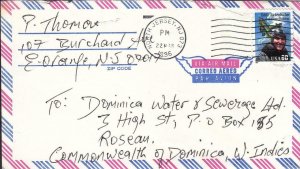 P. Thomas
107 Burchard Av
E. Orange, N-J 070
ZIP CODE
NORTH JERSEY NJ
PM
1996
VIA AIR MAIL
CORREO AEREO
PAR AVION
USA 60
To: Dominica Water & Sewerage Ltd.
3 High St, P.O Box 185
Roseau
Commonwealth of Dominica, W-Indies